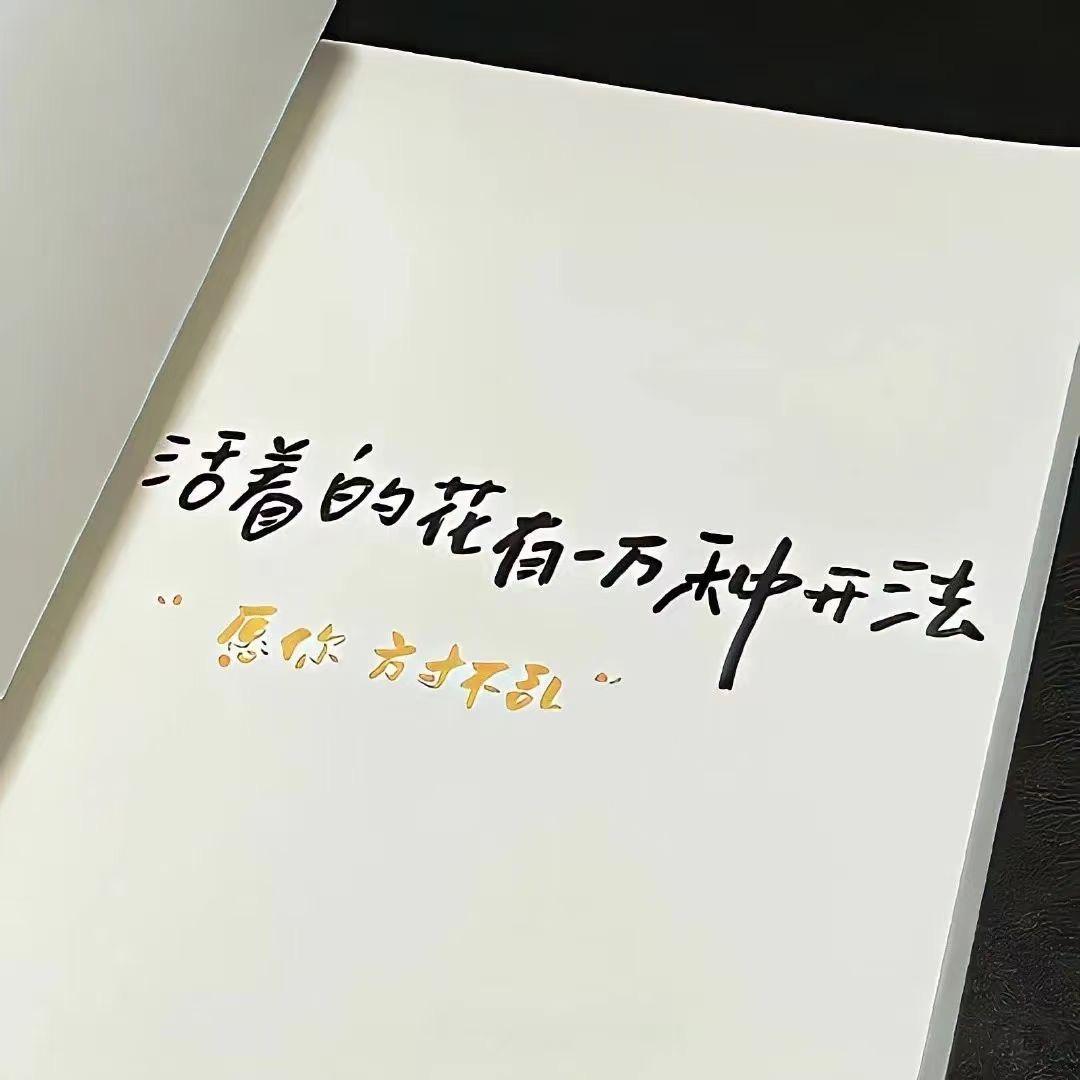 活着的花有一万种开法
"愿你 方寸不乱"